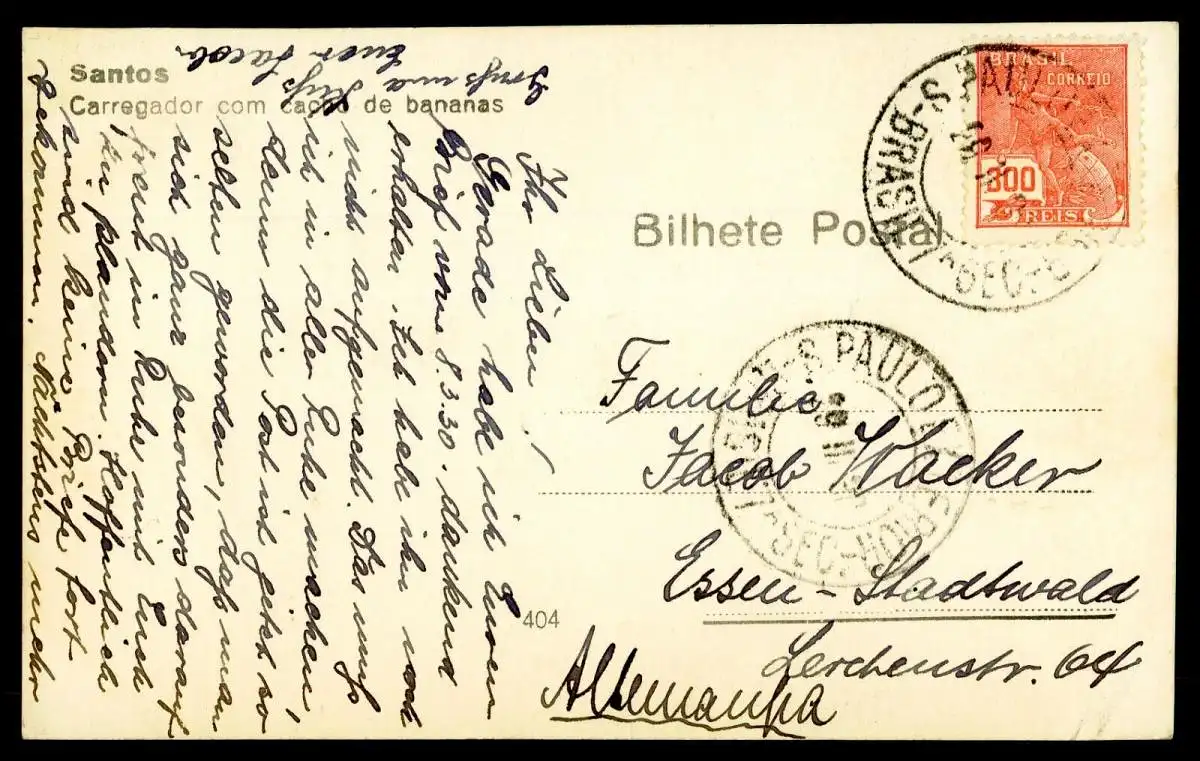 Santos
Carregador com cacho de bananas
Bilhete Postal
BRASIL
CORREIO
300
REIS
S-BRASIL
1ª SEC-
S. PAULO
1ª SEC-
404
Familie
Jacob Wacker
Essen-Stadtwald
Lerchenstr. 64
Allemanha
Ihr Lieben!
Gerade habe ich Euren
Brief vom 8.3.30. dankend
erhalten. Ich habe ihn noch
nicht aufgemacht. Das muß
ich in aller Ruhe machen,
denn die Post ist jetzt so
selten geworden, daß man
sich ganz besonders darauf
freut in Ruhe mit Euch
zu plaudern. Hoffentlich
sind meine Briefe fort
gekommen. Nächstens mehr
Gruß und Kuß
Euer Jacob.